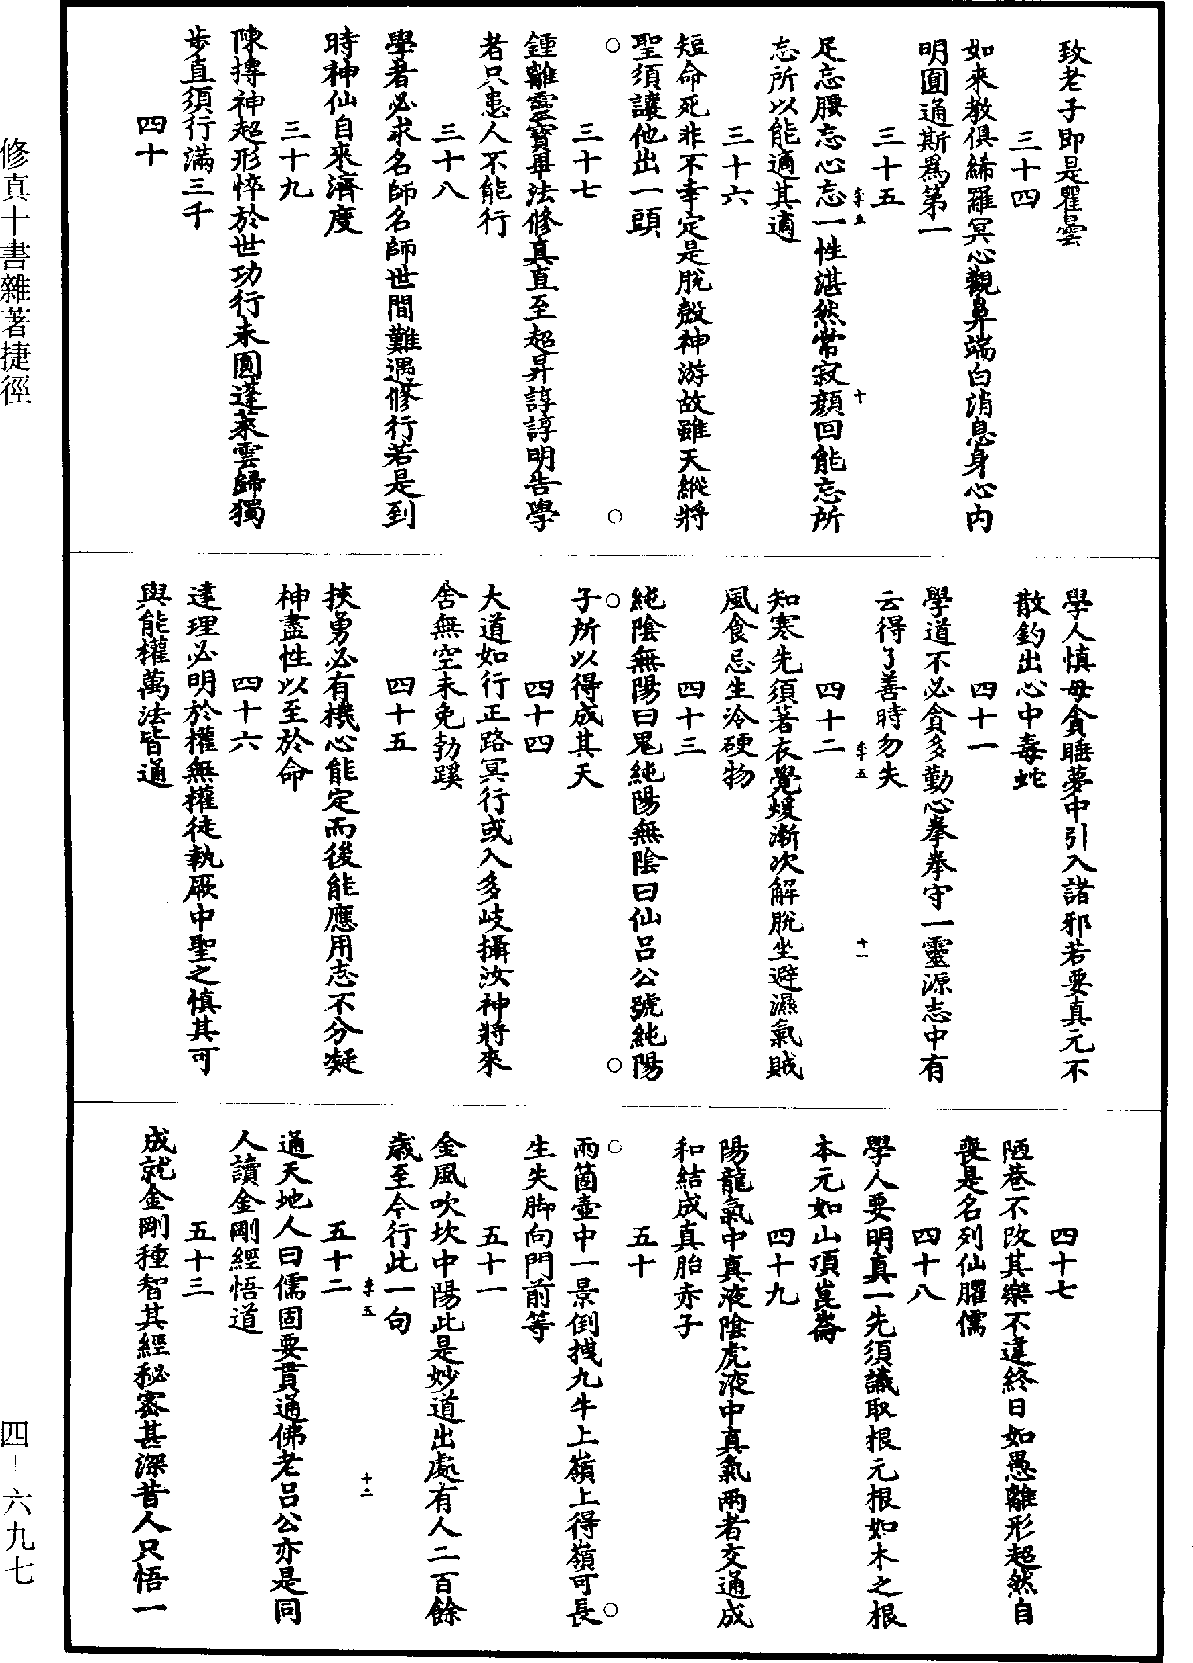 致老子即是瞿曇
三十四
如來教俱絺羅冥心觀鼻端白消息身心內
明圓通斯為第一
三十五
足忘腰忘心忘一性湛然常寂顏回能忘所
忘所以能適其適
三十六
短命死非不幸定是脫殼神游故雖天縱將
聖須讓他出一頭
三十七
鍾離靈寶畢法修真直至超昇諄諄明告學
者只患人不能行
三十八
學者必求名師名師世間難遇修行若是到
時神仙自來濟度
三十九
陳摶神超形悴於世功行未圓蓬萊雲歸獨
步直須行滿三千
四十
學人慎毋貪睡夢中引入諸邪若要真元不
散釣出心中毒蛇
四十一
學道不必貪多勤心拳拳守一靈源志中有
云得了善時勿失
四十二
知寒先須著衣覺煖漸次解脫坐避濕氣賊
風食忌生冷硬物
四十三
純陰無陽曰鬼純陽無陰曰仙呂公號純陽
子所以得成其天
四十四
大道如行正路冥行或入多岐攝汝神將來
舍無空未免勃蹊
四十五
挾勇必有機心能定而後能應用志不分凝
神盡性以至於命
四十六
達理必明於權無權徒執厥中聖之慎其可
與能權萬法皆通
四十七
陋巷不改其樂不違終日如愚離形超然自
喪是名列仙臞儒
四十八
學人要明真一先須識取根元根如木之根
本元如山頂崑崙
四十九
陽龍氣中真液陰虎液中真氣兩者交通成
和結成真胎赤子
五十
兩箇壺中一景倒拽九牛上嶺上得嶺可長
生失脚向門前等
五十一
金風吹坎中陽此是妙道出處有人二百餘
歲至今行此一句
五十二
通天地人曰儒固要貫通佛老呂公亦是同
人讀金剛經悟道
五十三
成就金剛種智其經秘密甚深昔人只悟一
修真十書雜著捷徑
四-六九七